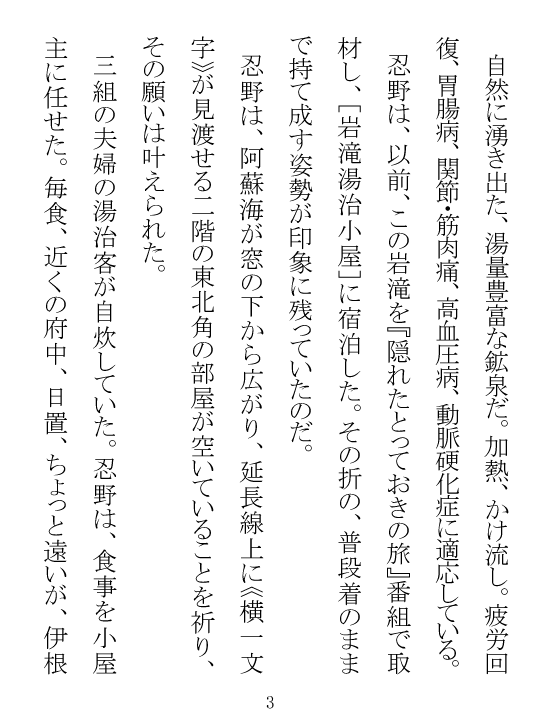 自然に湧き出た、湯量豊富な鉱泉だ。加熱、かけ流し。疲労回
復、胃腸病、関節・筋肉痛、高血圧病、動脈硬化症に適応している。
忍野は、以前、この岩滝を『隠れたとっておきの旅』番組で取
材し、［岩滝湯治小屋］に宿泊した。その折の、普段着のまま
で持て成す姿勢が印象に残っていたのだ。
忍野は、阿蘇海が窓の下から広がり、延長線上に《横一文
字》が見渡せる二階の東北角の部屋が空いていることを祈り、
その願いは叶えられた。
三組の夫婦の湯治客が自炊していた。忍野は、食事を小屋
主に任せた。毎食、近くの府中、日置、ちょっと遠いが、伊根
3